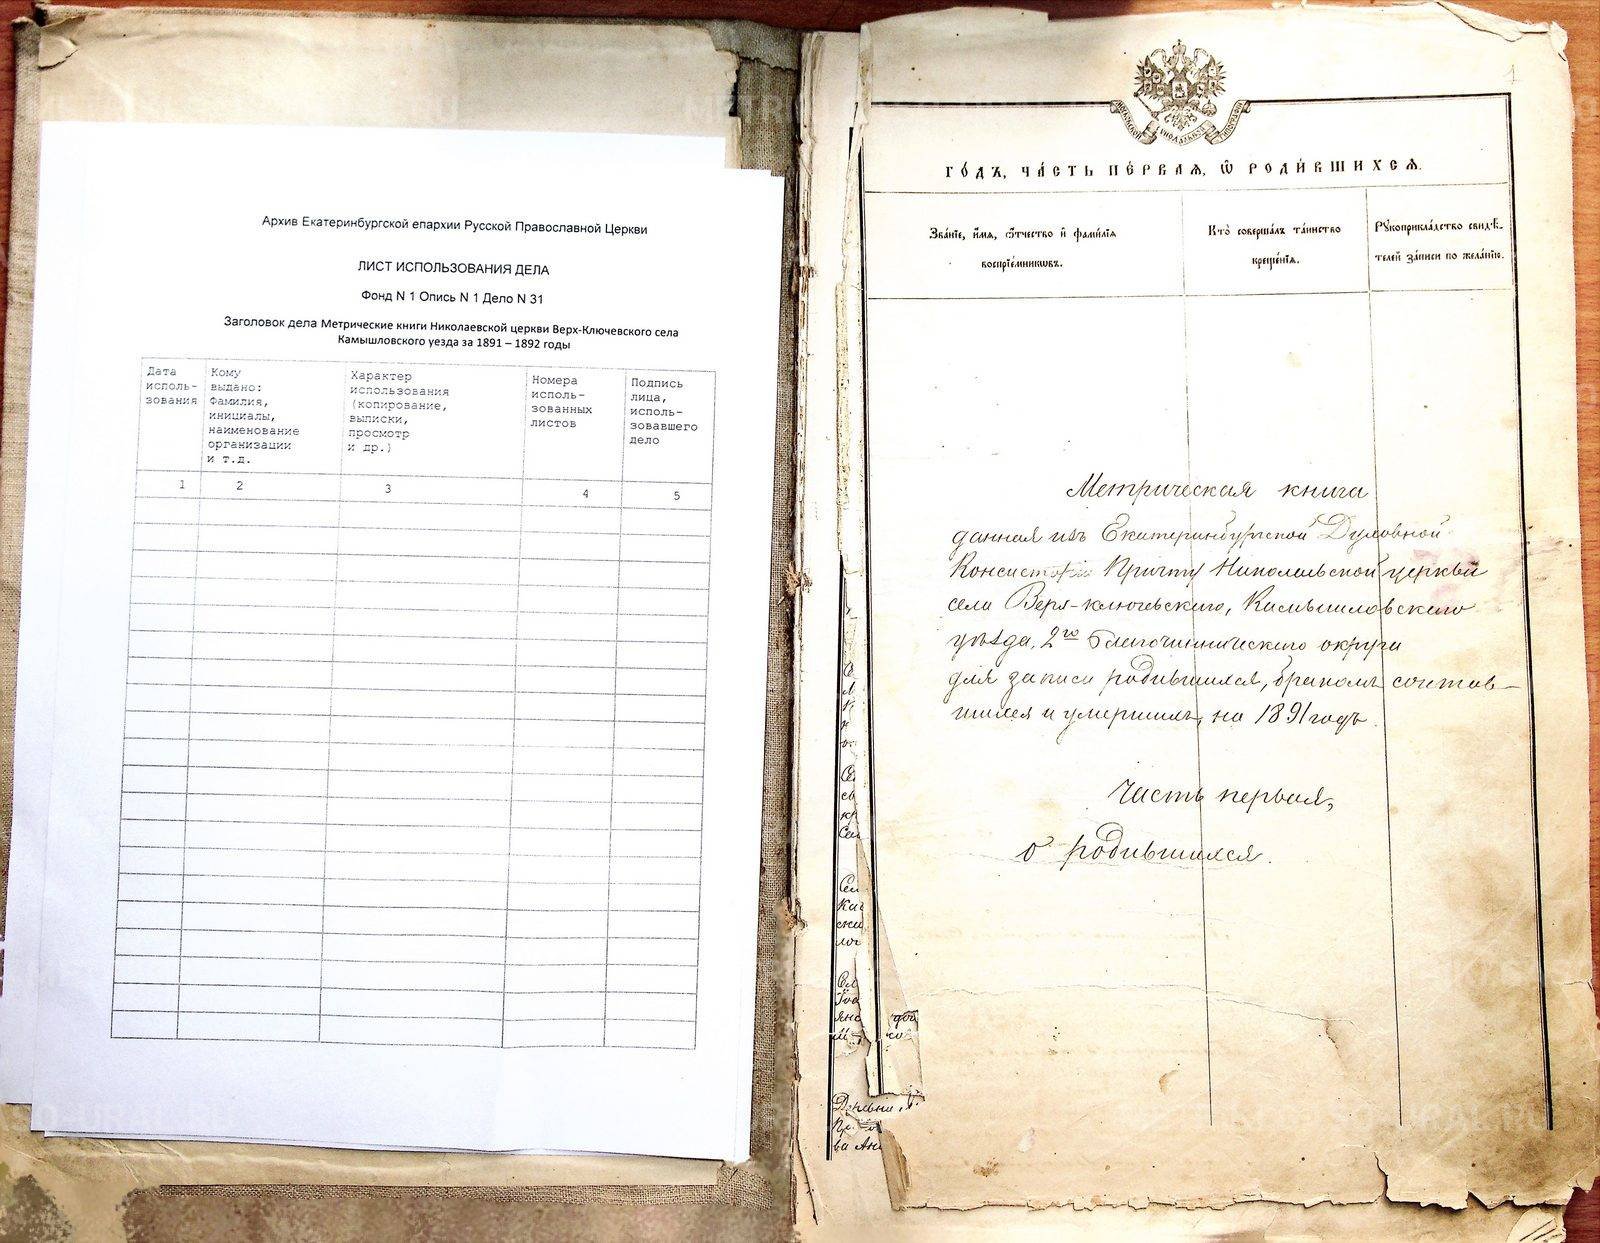 Архив Екатеринбургской епархии Русской Православной Церкви
ЛИСТ ИСПОЛЬЗОВАНИЯ ДЕЛА
Фонд N 1 Опись N 1 Дело N 31
Заголовок дела Метрические книги Николаевской церкви Верх-Ключевского села
Камышловского уезда за 1891 – 1892 годы
Дата
исполь-
зования
Кому
выдано:
Фамилия,
инициалы,
наименование
организации
и т.д.
Характер
использования
(копирование,
выписки,
просмотр
и др.)
Номера
исполь-
зованных
листов
Подпись
лица,
исполь-
зовавшего
дело
1 2 3 4 5
1
ГО́ДЪ, ЧА́СТЬ ПЕ́РВАѦ, Ѿ РОДИ́ВШИХСѦ.
Зва́нїе, и́мѧ, ѻ́тчество и҆ фами́лїѧ
воспрїе́мникѡвъ.
Кто̀ соверша́лъ та́инство
креще́нїѧ.
Рꙋкоприкла́дство свидѣ́-
телей за́писи по жела́нїю.
Метрическая книга
данная изъ Екатеринбургской Духовной
Консисторіи Причту Николаевской церкви
села Верх-ключевскаго, Камышловскаго
уѣзда, 2го Благочинническаго округа
для записи родившихся, бракомъ сочетав-
шихся и умершихъ, на 1891 годъ.
Часть первая,
о родившихся.